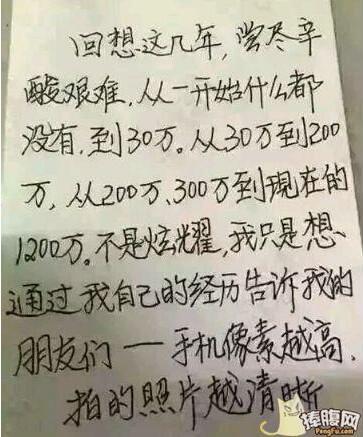 回想这几年，尝尽辛
酸艰难，从一开始什么都
没有，到30万。从30万到200
万，从200万、300万到現在的
1200万。不是炫耀，我只是想、
通过我自己的经历告诉我的
朋友们——手机像素越高、
拍的照片越清晰
捧腹网
PengFu.com